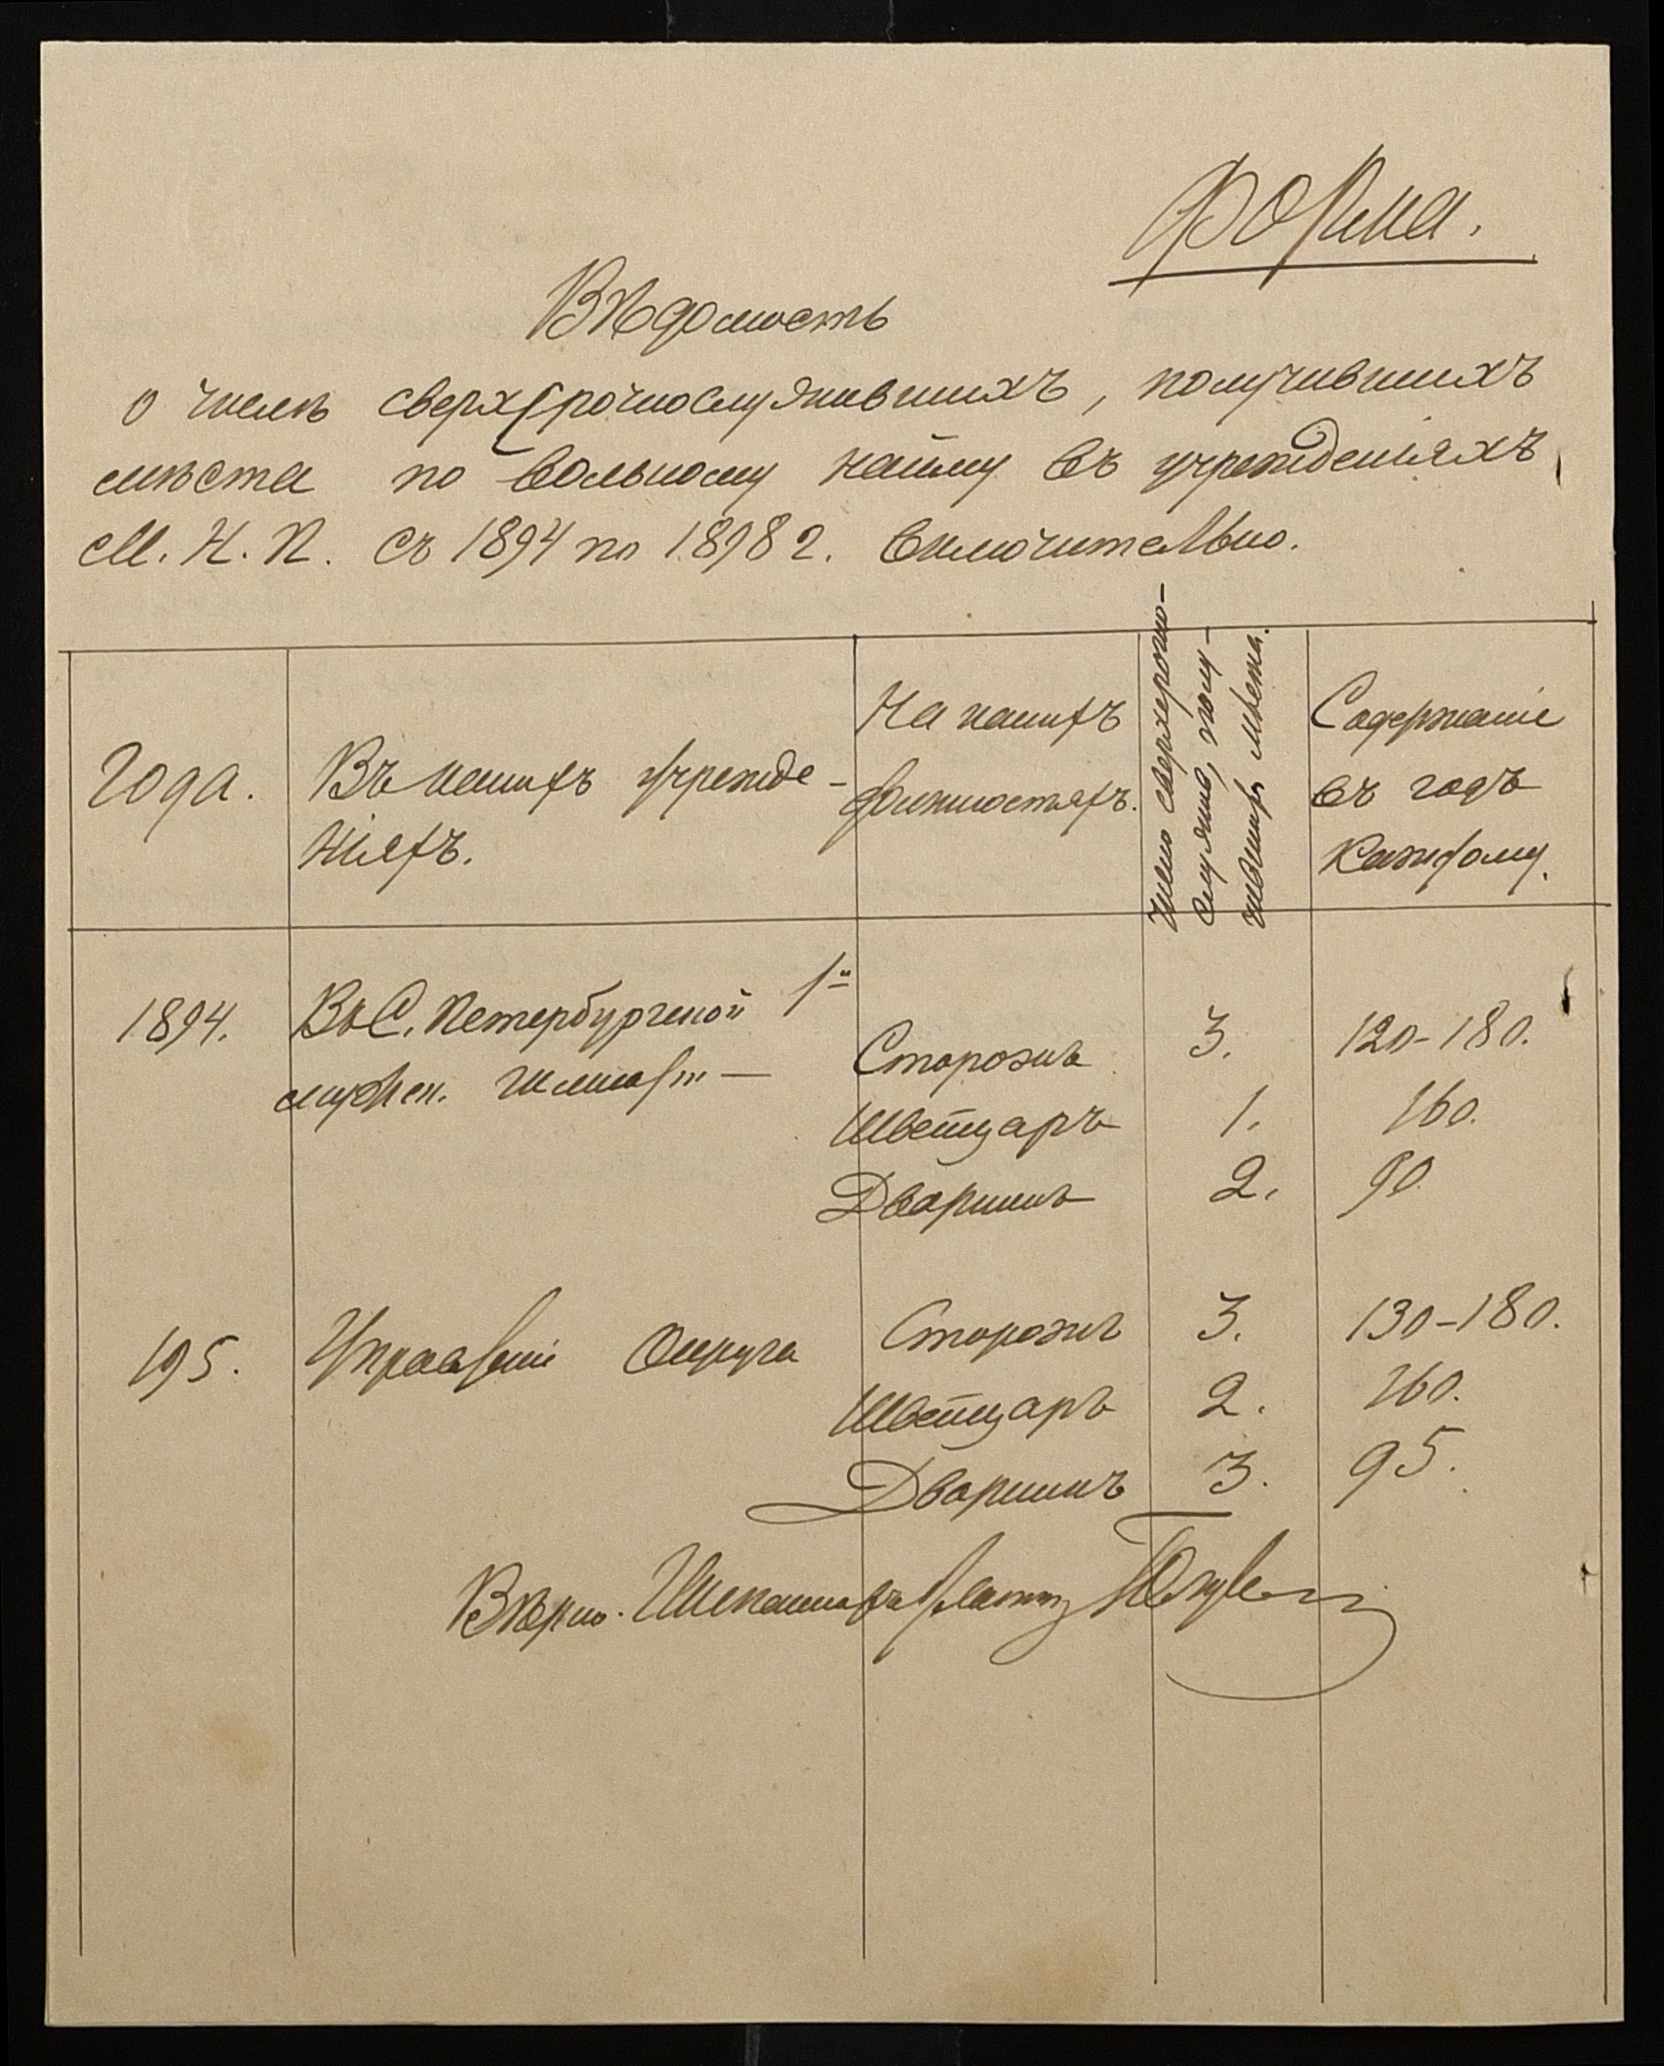 Форма.
Вѣдомость
о числѣ сверхсрочнослужившихъ, получившихъ
мѣста по вольному найму въ учрежденіяхъ
М. Н. П. съ 1894 по 1898 г. включительно.
Года.
Въ какихъ учрежде-
ніяхъ.
На какихъ
должностяхъ.
Число сверхсрочно-
служив., полу-
чившихъ мѣста.
Содержаніе
въ годъ
каждому.
1894. Въ С. Петербургской 1й
мужск. гимназ. — Сторожъ 3. 120-180.
Швейцаръ 1. 160.
Дворникъ 2. 90
195. Управленіе Округа Сторожъ 3. 130-180.
Швейцаръ 2. 160.
Дворникъ 3. 95.
Вѣрно.